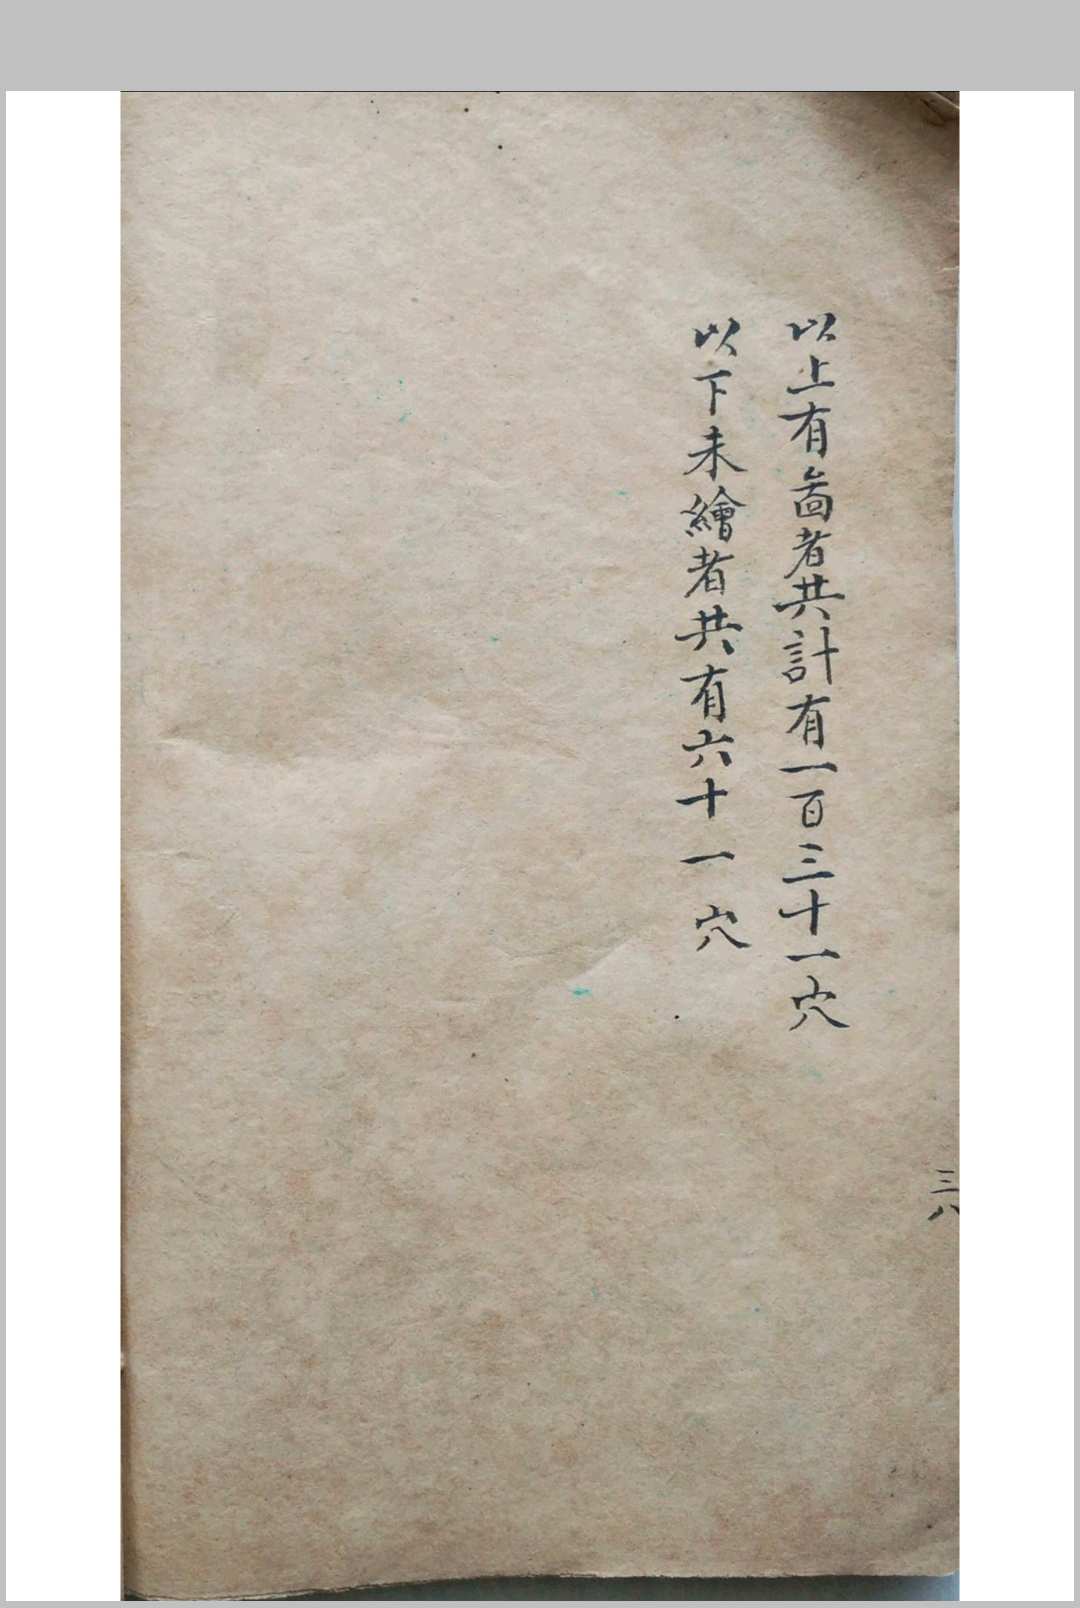 以上有啚者共計有一百三十一穴
以下未繪者共有六十一穴
三八